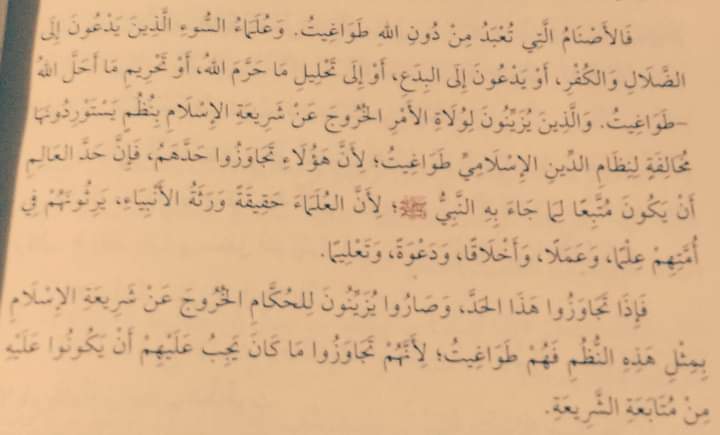 فَالأَصْنَامُ الَّتِي تُعْبَدُ مِنْ دُونِ اللهِ طَوَاغِيتُ. وَعُلَمَاءُ السُّوءِ الَّذِينَ يَدْعُونَ إِلَى
الضَّلَالِ وَالكُفْرِ، أَوْ يَدْعُونَ إِلَى البِدَعِ، أَوْ إِلَى تَحْلِيلِ مَا حَرَّمَ اللهُ، أَوْ تَحْرِيمِ مَا أَحَلَّ اللهُ
-طَوَاغِيتُ. وَالَّذِينَ يُزَيِّنُونَ لِوُلَاةِ الأَمْرِ الخُرُوجَ عَنْ شَرِيعَةِ الإِسْلَامِ بِنُظُمٍ يَسْتَوْرِدُونَهَا
مُخَالِفَةٍ لِنِظَامِ الدِّينِ الإِسْلَامِيِّ طَوَاغِيتُ؛ لِأَنَّ هَؤُلَاءِ تَجَاوَزُوا حَدَّهَمُ، فَإِنَّ حَدَّ العَالِمِ
أَنْ يَكُونَ مُتَّبِعًا لِمَا جَاءَ بِهِ النَّبِيُّ ﷺ؛ لِأَنَّ العُلَمَاءَ حَقِيقَةً وَرَثَةُ الأَنْبِيَاءِ، يَرِثُونَهُمْ فِي
أُمَّتِهِمْ عِلْمًا، وَعَمَلًا، وَأَخْلَاقًا، وَدَعْوَةً، وَتَعْلِيمًا.
فَإِذَا تَجَاوَزُوا هَذَا الحَدَّ، وَصَارُوا يُزَيِّنُونَ لِلحُكَّامِ الخُرُوجَ عَنْ شَرِيعَةِ الإِسْلَامِ
بِمِثْلِ هَذِهِ النُّظُمِ فَهُمْ طَوَاغِيتُ؛ لِأَنَّهُمْ تَجَاوَزُوا مَا كَانَ يَجِبُ عَلَيْهِمْ أَنْ يَكُونُوا عَلَيْهِ
مِنْ مُتَابَعَةِ الشَّرِيعَةِ.